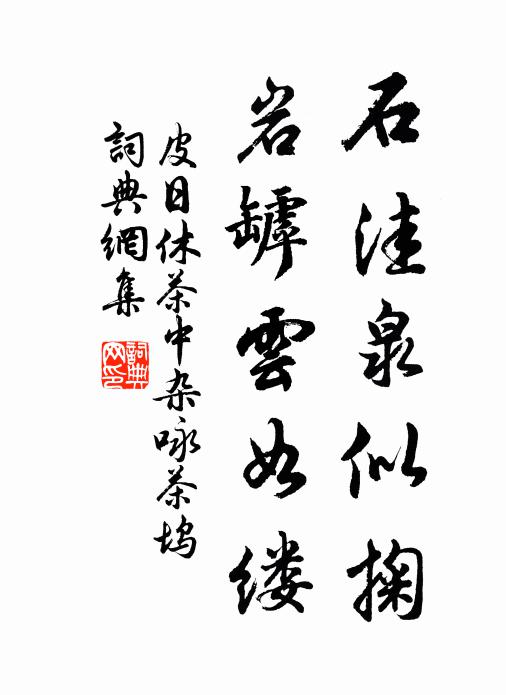 石洼泉似掬
岩罅雲如缕
皮日休茶中杂咏茶坞
詞典網集
詞典网印